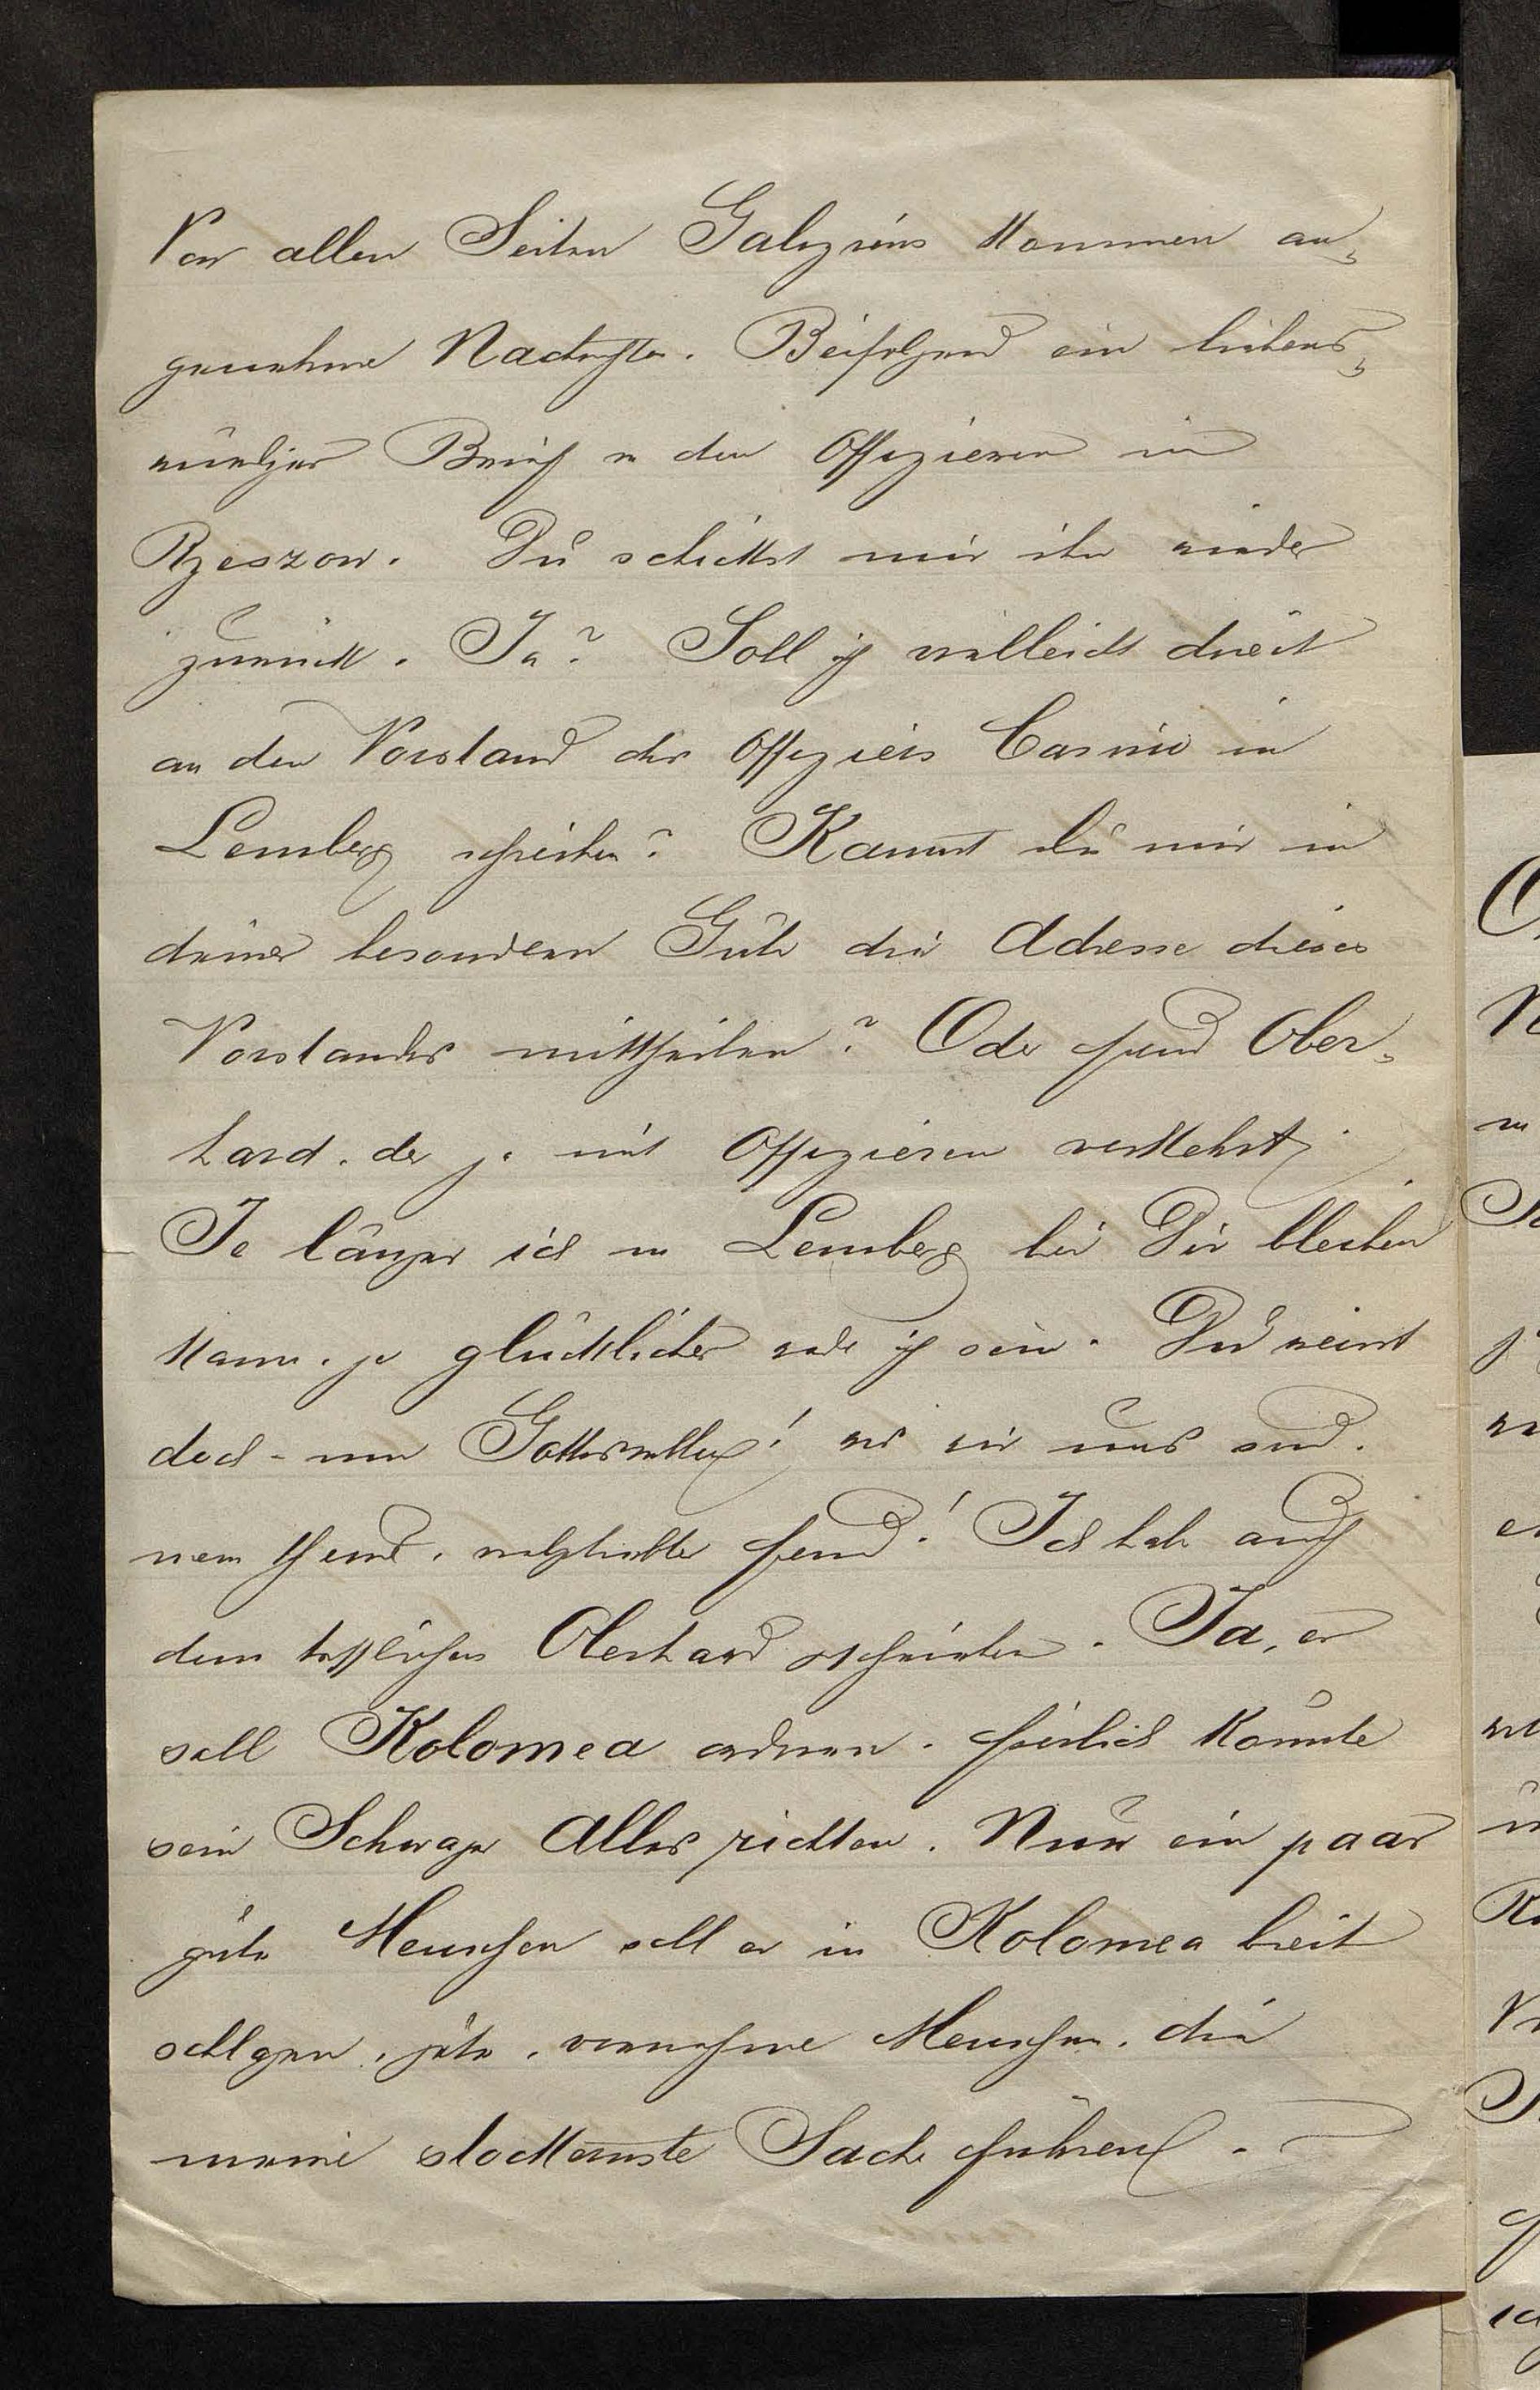 Von allen Seiten Galiziens kommen an-
genehme Nachrichten. Beifolgend ein liebens-
würdiger Brief v den Offizieren in
Rzeszow. Du schickst mir ihn wieder
zurück. Ja? Soll ich vielleicht direct
an den Vorstand des Offiziers Casino in
Lemberg schreiben? Kannst du mir in
deiner besonderen Güte die Adresse dieses
Vorstandes mittheilen? Oder Freund Ober-
hard, der ja mit Offizieren verkehrt,
Je länger ich in Lemberg bei Dir bleiben
kann, je glücklicher werde ich sein. Du weisst
doch - um Gotteswillen! was wir uns sind.
mein Freund, vielgeliebter Freund! Ich habe auch
dem trefflichen Oberhard geschrieben. Ja, er
soll Kolomea ordnen. freilich könnte
sein Schwager Alles richten. Nur ein paar
gute Menschen soll er in Kolomea breit
schlagen, gute, vornehme Menschen, die
meine stockernste Sache führen.